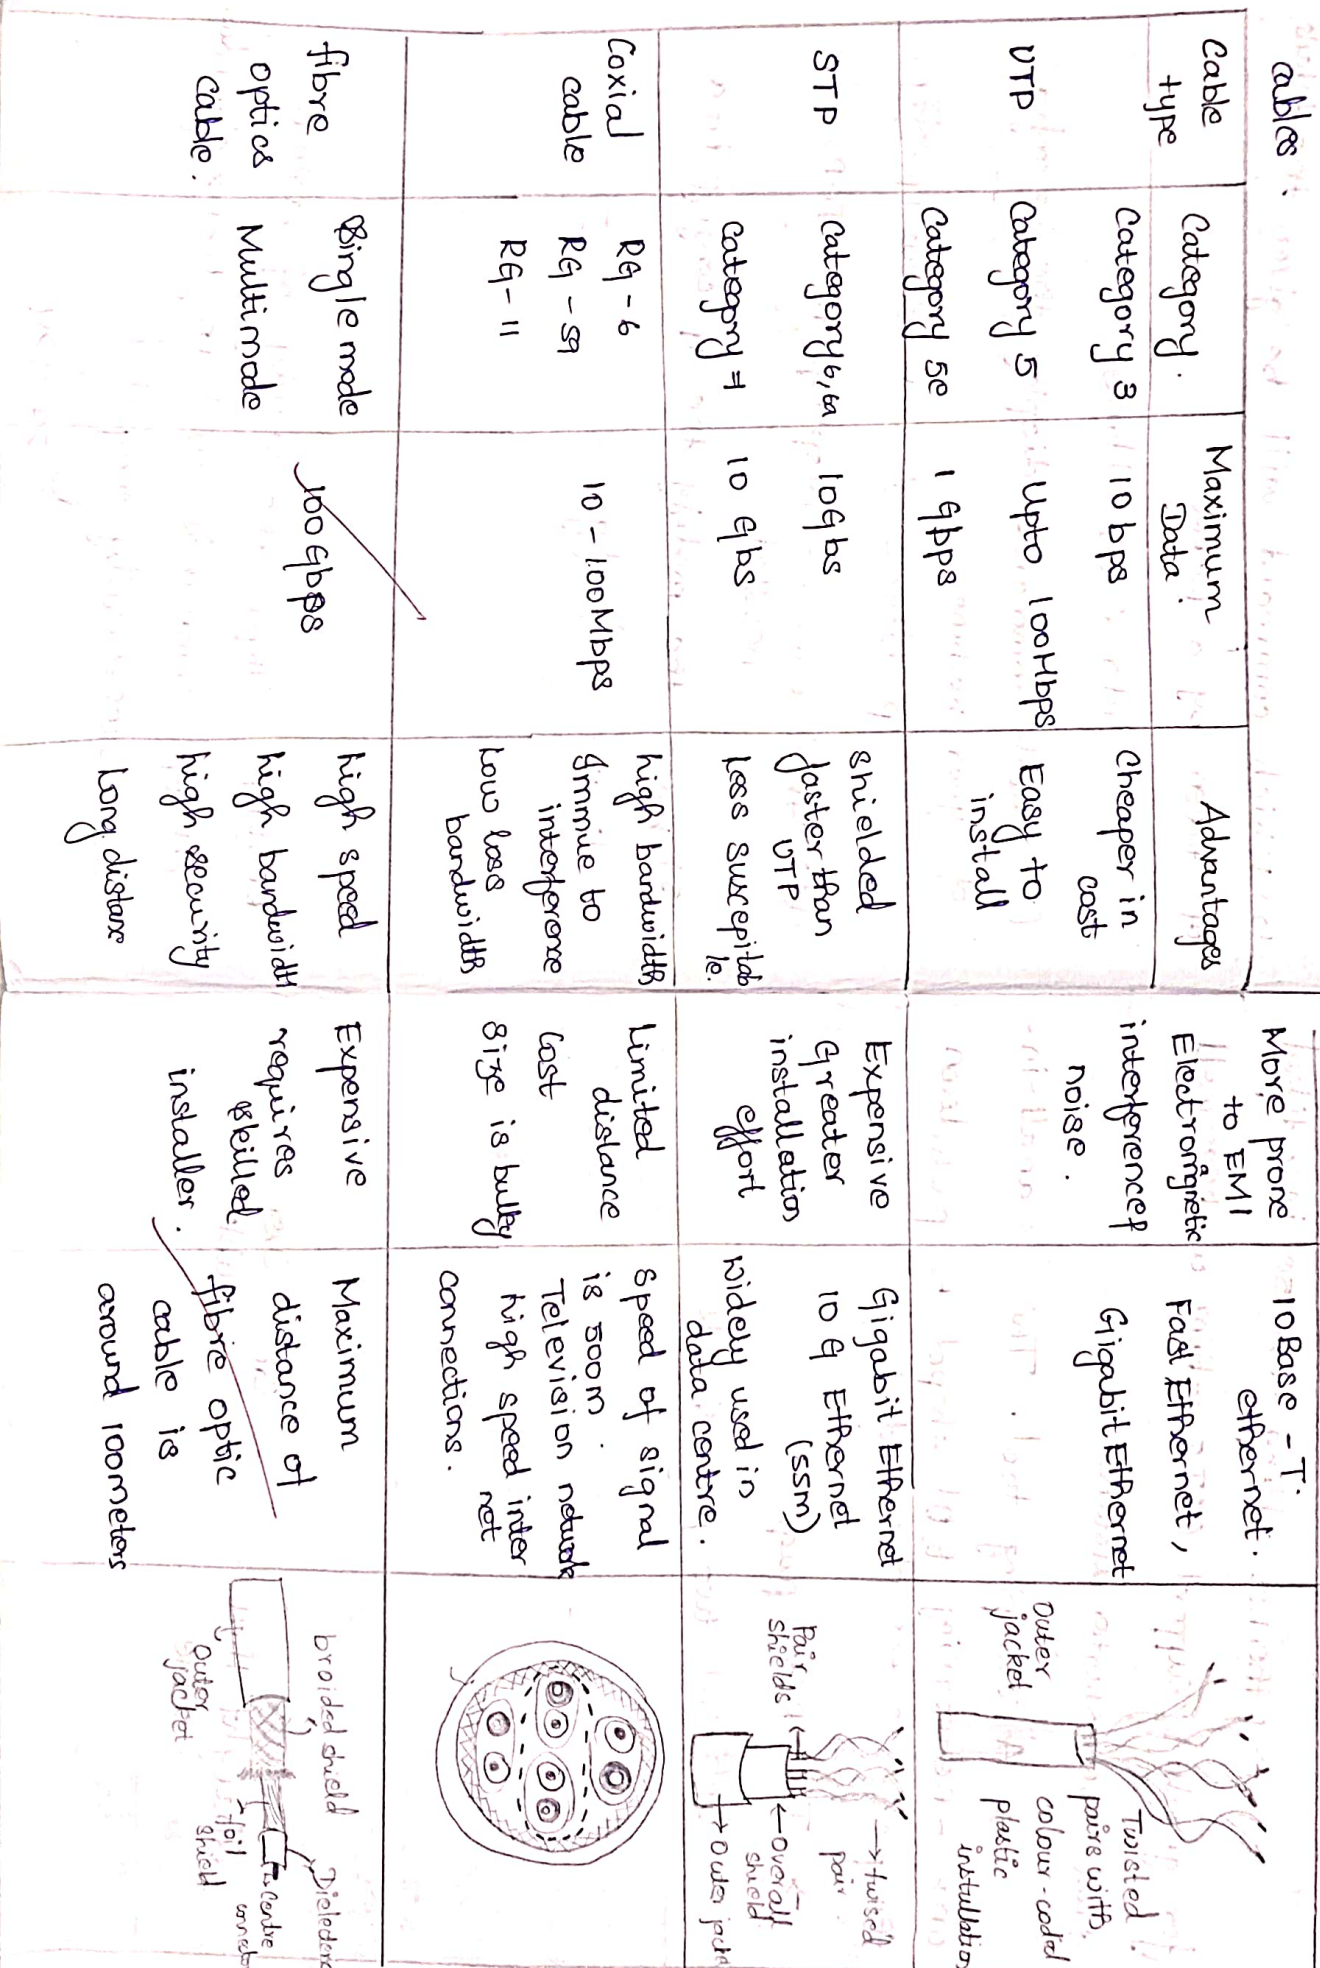 cables.
Cable type
Category.
Maximum Data.
Advantages
UTP
Category 3
Category 5
Category 5e
10 bps
Upto 100Mbps
1 Gbps
Cheaper in
cost
Easy to
install
More prone
to EMI
Electromgnetic
interference &
noise.
10Base-T
ethernet.
Fast Ethernet,
Gigabit Ethernet
Outer
jacket
Twisted
pairs with
colour-coded
plastic
STP
Category 6, 6a
Category 7
10Gbs
10 Gbs
Shielded
faster than
UTP
less suscepitab
le.
Expensive
Greater
installation
effort
Gigabit Ethernet
10 G Ethernet
(55m)
Widely used in
data centre.
Pair
shields
→ twised
pair
← Overall
shield
→ Outer
Coxial
cable
RG - 6
RG - 59
RG - 11
10 - 100Mbps
high bandwidth
Immue to
interference
Low loss
bandwidth
Limited
distance
Cost
Size is bulky
Speed of signal
is 500m.
Television network
high speed inter
net
connections.
fibre
optics
cable.
Single mode
Multimode
100 Gbps
high speed
high bandwidth
high security
Long distance
Expensive
requires
skilled
installer.
Maximum
distance of
fibre optic
cable is
around 100meters
broided shield
Outer
jacket
foil
shield
centre